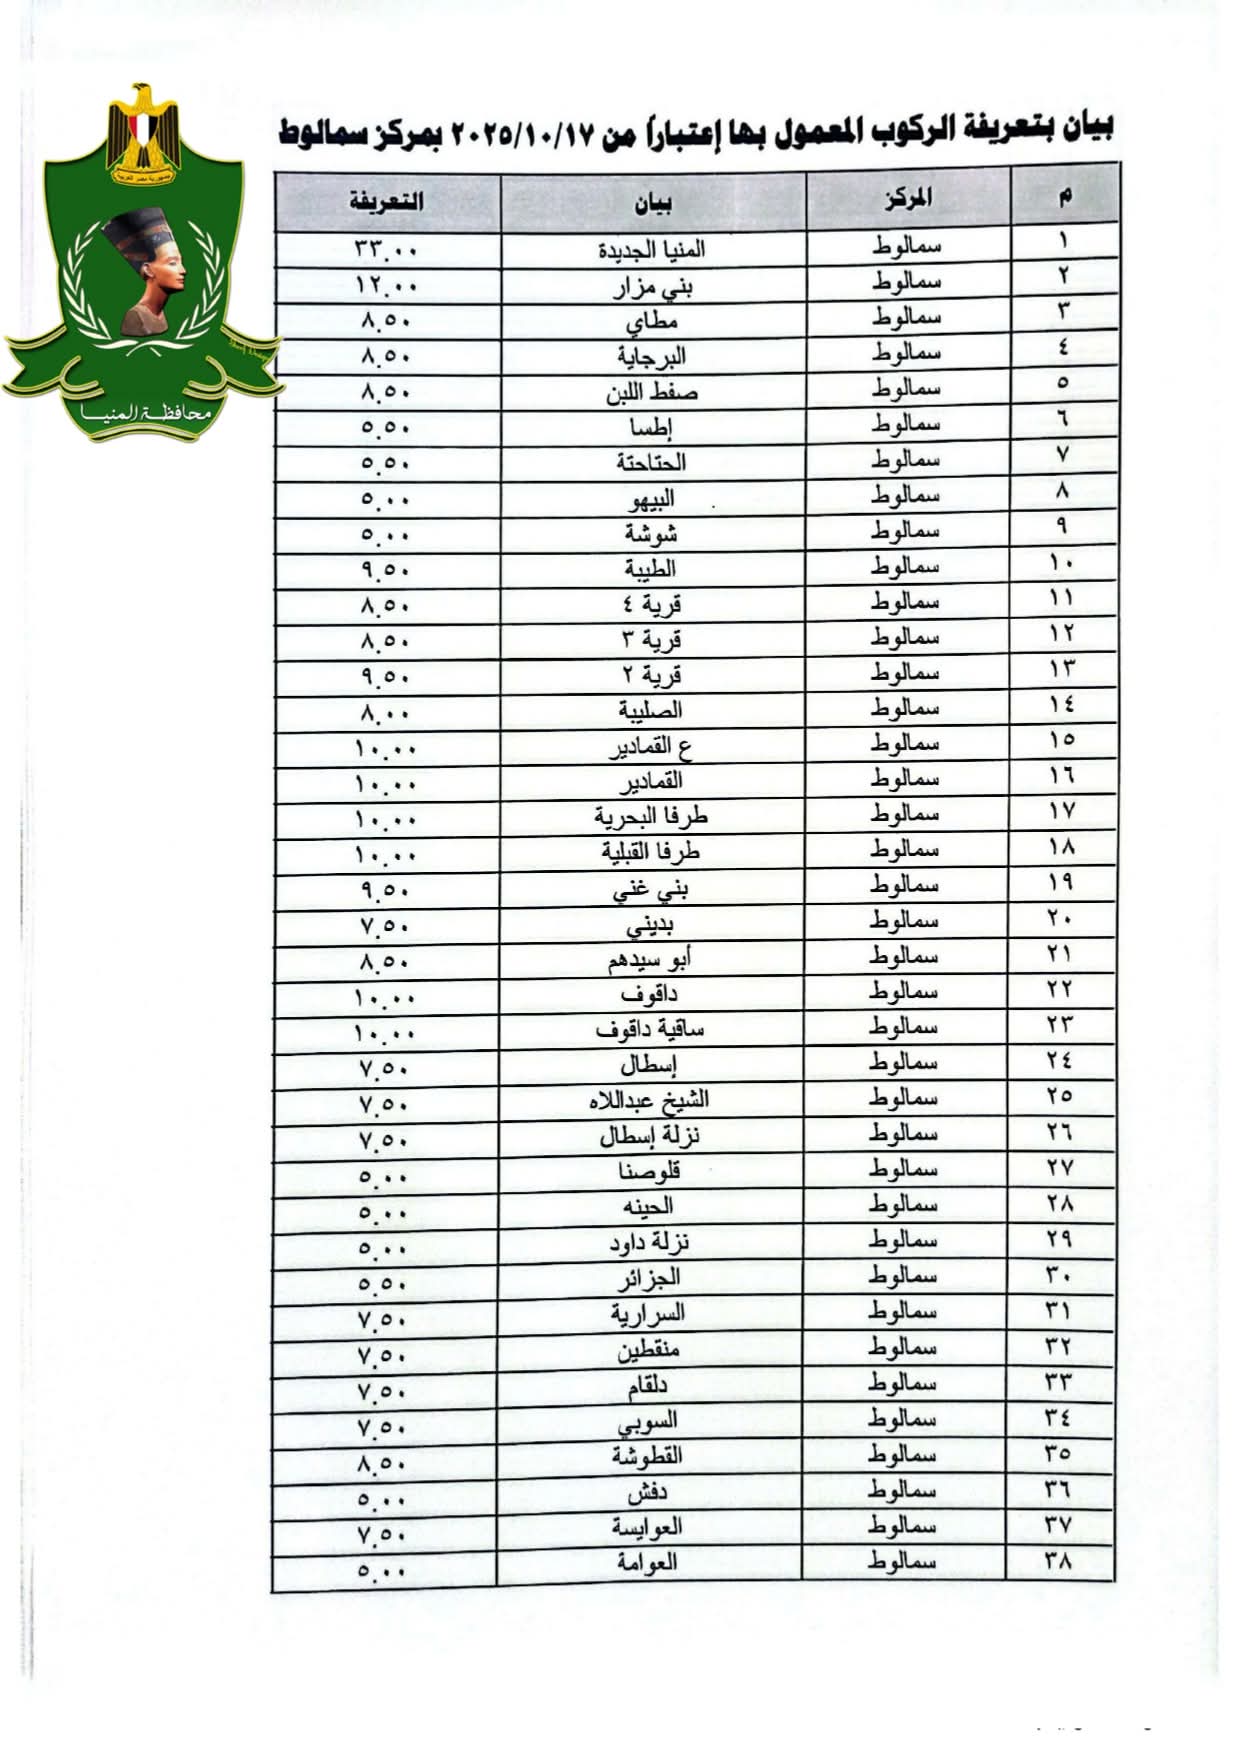 بيان بتعريفة الركوب المعمول بها إعتباراً من ٢٠٢٥/١٠/١٧ بمركز سمالوط
م المركز بيان التعريفة
١ سمالوط المنيا الجديدة ٣٣.٠٠
٢ سمالوط بني مزار ١٢.٠٠
٣ سمالوط مطاي ٨.٥٠
٤ سمالوط البرجاية ٨.٥٠
٥ سمالوط صفط اللبن ٨.٥٠
٦ سمالوط إطسا ٥.٥٠
٧ سمالوط الحتاحتة ٥.٥٠
٨ سمالوط البيهو ٥.٠٠
٩ سمالوط شوشة ٥.٠٠
١٠ سمالوط الطيبة ٩.٥٠
١١ سمالوط قرية ٤ ٨.٥٠
١٢ سمالوط قرية ٣ ٨.٥٠
١٣ سمالوط قرية ٢ ٩.٥٠
١٤ سمالوط الصليبة ٨.٠٠
١٥ سمالوط ع القمادير ١٠.٠٠
١٦ سمالوط القمادير ١٠.٠٠
١٧ سمالوط طرفا البحرية ١٠.٠٠
١٨ سمالوط طرفا القبلية ١٠.٠٠
١٩ سمالوط بني غني ٩.٥٠
٢٠ سمالوط بديني ٧.٥٠
٢١ سمالوط أبو سيدهم ٨.٥٠
٢٢ سمالوط داقوف ١٠.٠٠
٢٣ سمالوط ساقية داقوف ١٠.٠٠
٢٤ سمالوط إسطال ٧.٥٠
٢٥ سمالوط الشيخ عبداللاه ٧.٥٠
٢٦ سمالوط نزلة إسطال ٧.٥٠
٢٧ سمالوط قلوصنا ٥.٠٠
٢٨ سمالوط الحينه ٥.٠٠
٢٩ سمالوط نزلة داود ٥.٠٠
٣٠ سمالوط الجزائر ٥.٥٠
٣١ سمالوط السرارية ٧.٥٠
٣٢ سمالوط منقطين ٧.٥٠
٣٣ سمالوط دلقام ٧.٥٠
٣٤ سمالوط السوبي ٧.٥٠
٣٥ سمالوط القطوشة ٨.٥٠
٣٦ سمالوط دفش ٥.٠٠
٣٧ سمالوط العوايسة ٧.٥٠
٣٨ سمالوط العوامة ٥.٠٠
جمهورية مصر العربية
محافظة المنيا